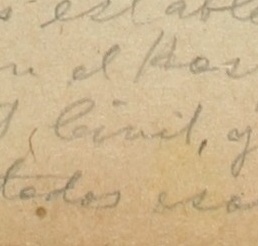 s estable
n el Hos
l Civil, y
todos eso